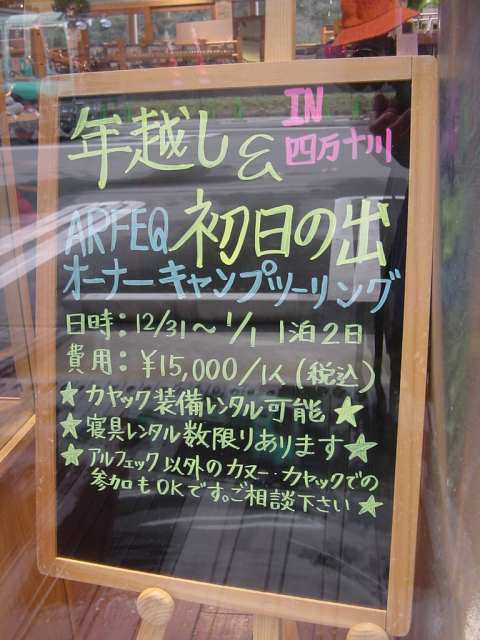 年越し&
IN
四万十川
初日の出
ARFEQ
オーナーキャンプツーリング
日時:12/31～1/1 1泊2日
費用:¥15,000/1人(税込)
★カヤック装備レンタル可能★
★寝具レンタル数限りあります★
★アルフェック以外のカヌー・カヤックでの
参加もOKです。ご相談下さい★